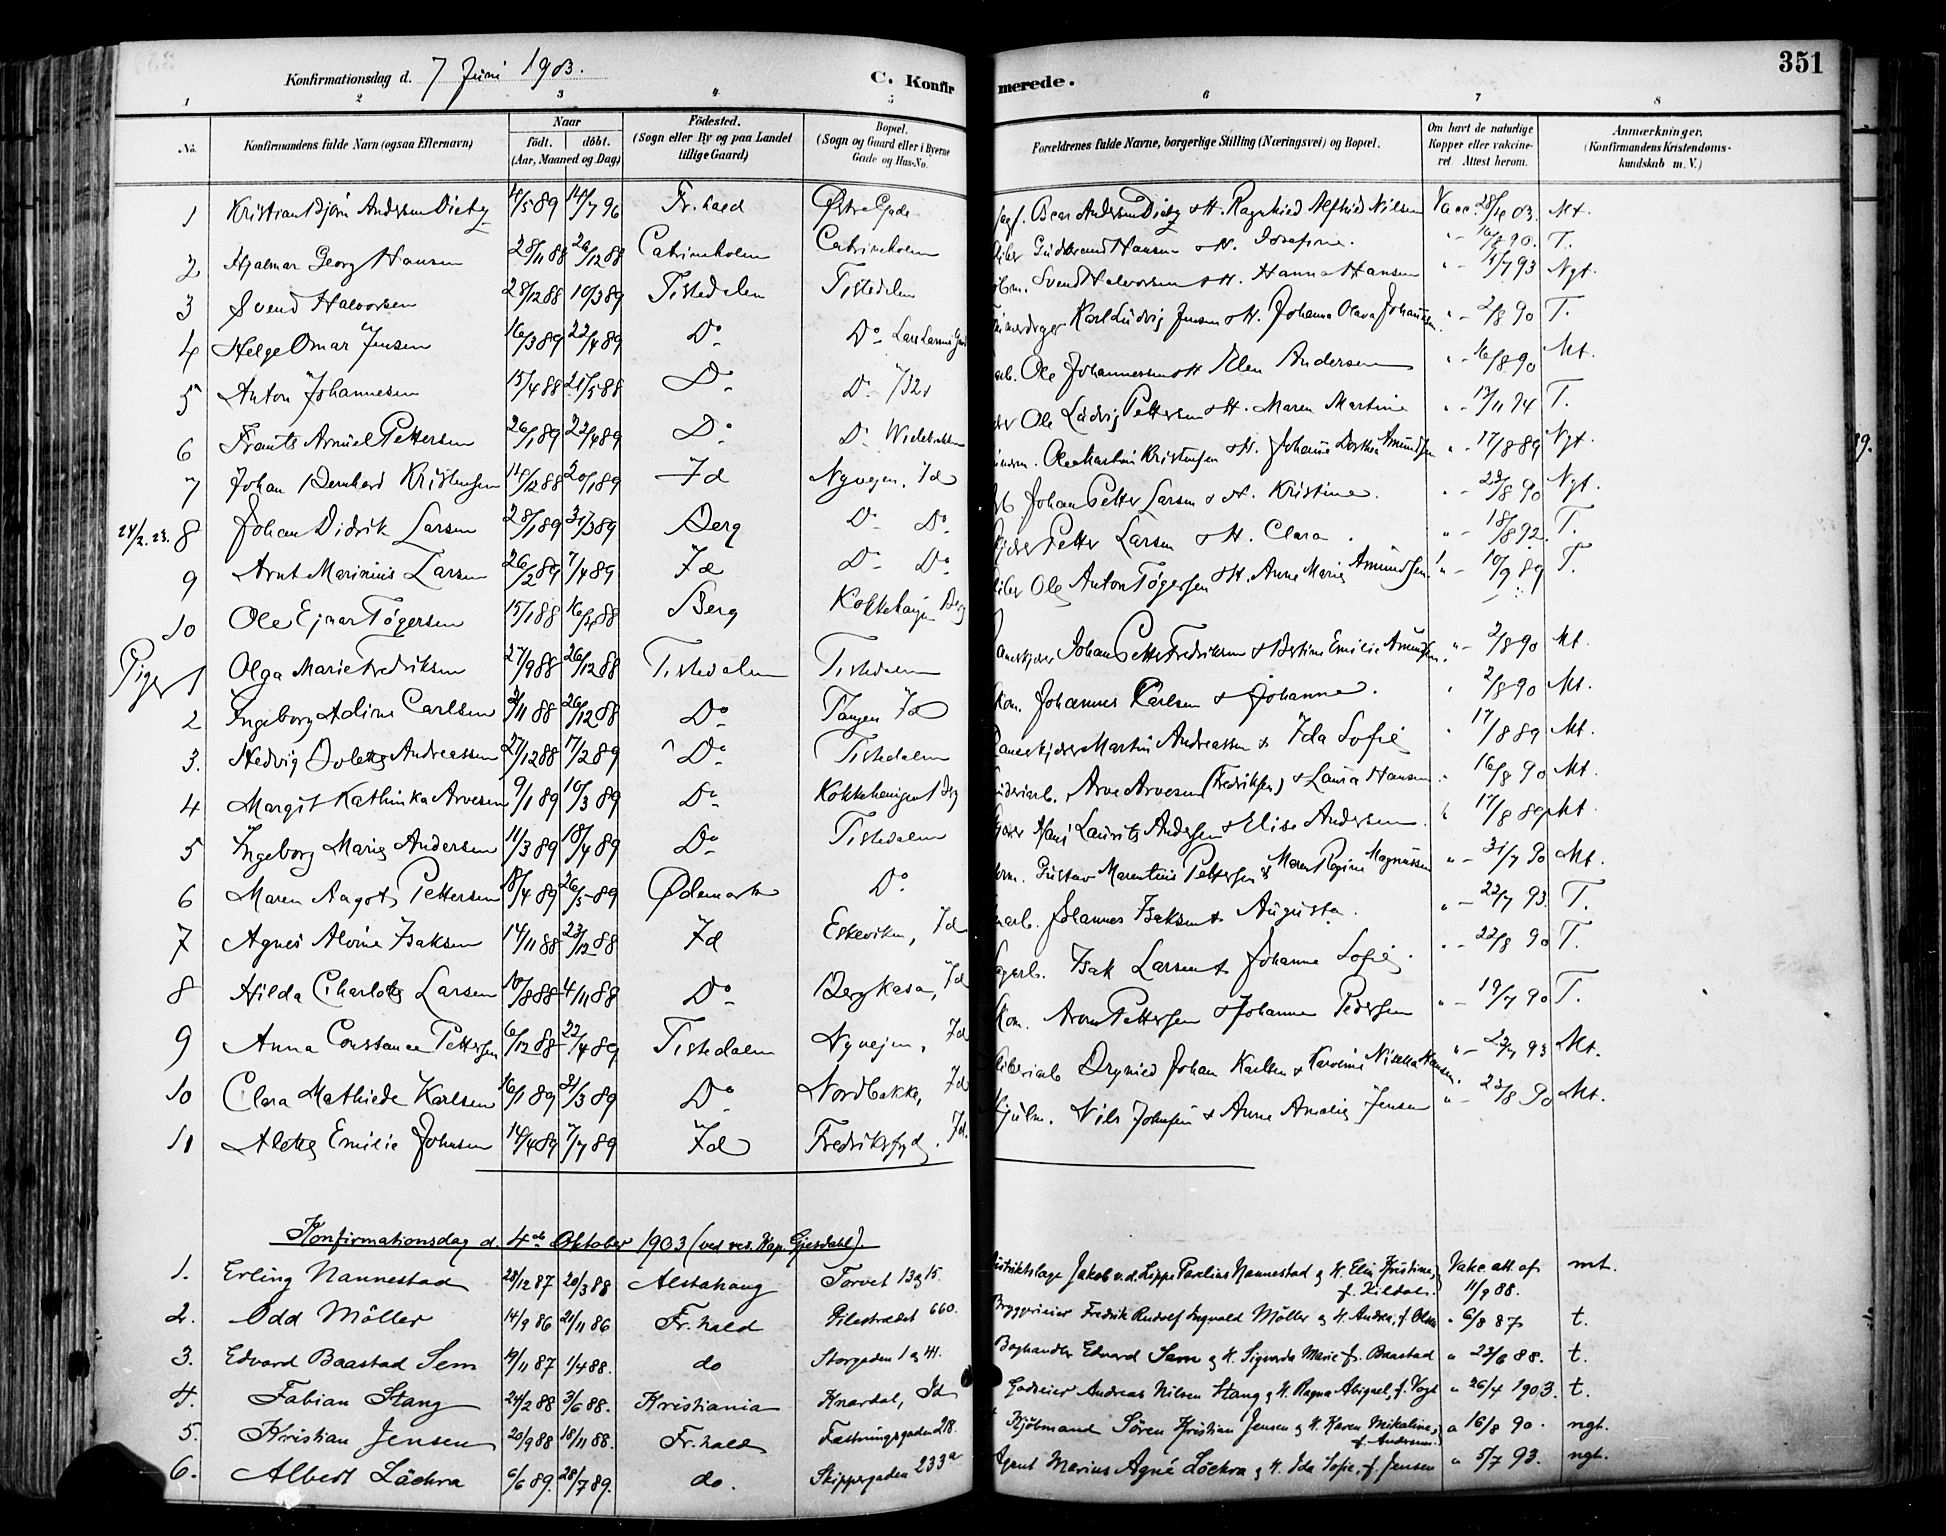 351
Konfirmationsdag d. 7 Juni 1903.
C. Konfirmerede.
1 2 3 4 5 6 7 8
No.
Konfirmandens fulde Navn (ogsaa Efternavn)
Naar
født. døbt.
(Aar, Maaned og Dag)
Fødested.
(Sogn eller By og paa Landet
tillige Gaard)
Bopæl.
(Sogn og Gaard eller i Byerne
Gade og Hus-No.
Forældrenes fulde Navne, borgerlige Stilling (Næringsvei) og Bopæl.
Om havt de naturlige
Kopper eller vakcine-
ret. Attest herom.
Anmærkninger.
(Konfirmandens Kristendoms-
kundskab m. V.)
1 Kristian Bjørn Andersen 4/5 89 14/7 96 Fr.hald Østre Gade Andersen & H. Ragnhild Alfhild Nilsen Vacc. 28/4 03. Mt.
2 Hjalmar Georg Hansen 28/11 88 26/12 88 Catrineholm Catrineholm Gudbrand Hansen & H. Josefine. " - 16/8 90. T.
3 Svend Halvorsen 28/12 88 10/3 89 Tistedalen Tistedalen Svend Halvorsen & H. Hanna Hansen " - 4/7 93 Ngt.
4 Helge Omar Jensen 16/3 89 22/4 89 Do Do Karl Ludvig Jensen & H. Johanna Olava " - 2/8 90 T.
5 Anton Johannesen 15/4 88 21/5 88 Do Do Ole Johannessen & H. Elen Andersen " - 16/8 90 Mt.
6 Frants Arnuel Pettersen 26/1 89 22/4 89 Do Do Ole Ludvig Pettersen & H. Maren Martine " - 13/11 94 T.
7 Johan Bernhard Kristensen 11/12 88 20/1 89 Id Nyvejen, Id Ole Martin Kristensen & H. Johanne Dorthea Amundsen " - 17/8 89 Ngt.
24/2.23. 8 Johan Didrik Larsen 28/1 89 31/3 89 Berg Do Do Johan Petter Larsen & H. Kristine. " - 23/8 90 Ngt.
9 Arnt Marinius Larsen 26/2 89 7/4 89 Id Do Do Petter Larsen & H. Clara. " - 18/8 92. T.
10 Ole Ejnar Tøgersen 15/1 88 Berg Kokkehaugen Berg Ole Anton Tøgersen & H. Anne Marie Amundsen. " - 10/9 89 T.
Piger 1 Olga Marie Fredriksen 27/9 88 26/12 88 Tistedalen Tistedalen Johan Petter Fredriksen & Bertine Emilie Amundsen. " - 2/8 90 Mt.
2 Ingeborg Adine Carlsen 26/12 88 Do Tangen Id Johannes Karlsen & Johanne. " 2/8 90 Mt.
3. Hedvig Andreassen 27/12 88 17/2 89 Do Tistedalen Martin Andreassen & Ida Sofie " 17/8 89 Mt.
4 Margit Kathinka Arvesen 9/1 89 10/3 89 Do Kokkehaugen Brg Arve Arvesen (Fredriksen) & Laura Hansen " 16/8 90 Mt.
5 Ingeborg Marie Andersen 11/3 89 18/4 89 Do Tistedalen Hans Laurits Andersen & Elise Andersen. " 17/8 89 Mt
6 Maren Aagot Pettersen 18/4 89 26/5 89 Ødemark Do Gustav Marentius Pettersen & Maren Regine Magnussen " - 31/7 90 Mt.
7 Agnes Alvine Isaksen 14/11 88 23/12 88 Id Eskeviken, Id Johannes Isaksen & Augusta. " - 22/7 93. T.
8 Hilda Charlotte Larsen 10/8 88 4/11 88 Do Bergkasa, Id Isak Larsen & Johanne Sofie. " - 22/8 90 T.
9 Anna Constance Pettersen 6/12 88 22/4 89 Tistedalen Nyvejen, Id Pettersen & Johanne Pedersen " - 19/7 90 T.
10 Clara Mathiede Karlsen 16/1 89 31/3 89 Do Nordbakke, Id Johan Karlsen & Karoline Hansen. " - 93 Mt.
11 Alette Emilie Johnsen 14/4 89 7/7 89 Id Fredriksfryd, Id. Nils Johnsen & Anne Amalie Jensen " - 23/8 90 Mt.
Konfirmationsdag d. 4de Oktober 1903 (ved res. Kap. Gjesdahl).
1. Erling Nannestad 28/12 87 20/3 88 Alstahaug Torvet 13 og 15. Jakob v.d. Lippe Paulius Nannestad og H. Elin Kristine, f. Kildal. Vakc. att. af 11/9 88. mt.
2. Odd Möller 14/9 86 21/11 86 Fr.hald Pilestrædet 660. Bryggerieier Fredrik Rudolf Ingvald Möller og H. Andrea, f. Olsen " 6/8 87 t.
3. Edvard Baastad Sem 19/11 87 1/4 88. do Storgaden 1 og 41. Boghandler Edvard Sem og H. Sigvarda Marie f. Baastad " 23/6 88. t.
4. Fabian Stang 24/2 88 3/6 88. Kristiania Knardal, Id Godseier Andreas Nilsen Stang og H. Ragna Abigael, f. Vogt " 26/4 1903. t.
5. Kristian Jensen 20/9 88 18/11 88. Fr.hald Fæstningsgaden 218. Kjöbmand Sören Kristian Jensen og H. Karen Mikaline, f. Andersen. " 16/8 90. ngt.
6. Albert Löchra 6/6 89. 28/7 89. do. Skippergaden 233a Agent Marius Agné Löchra og H. Ida Sofie, f. Jensen " 5/7 93. ngt.